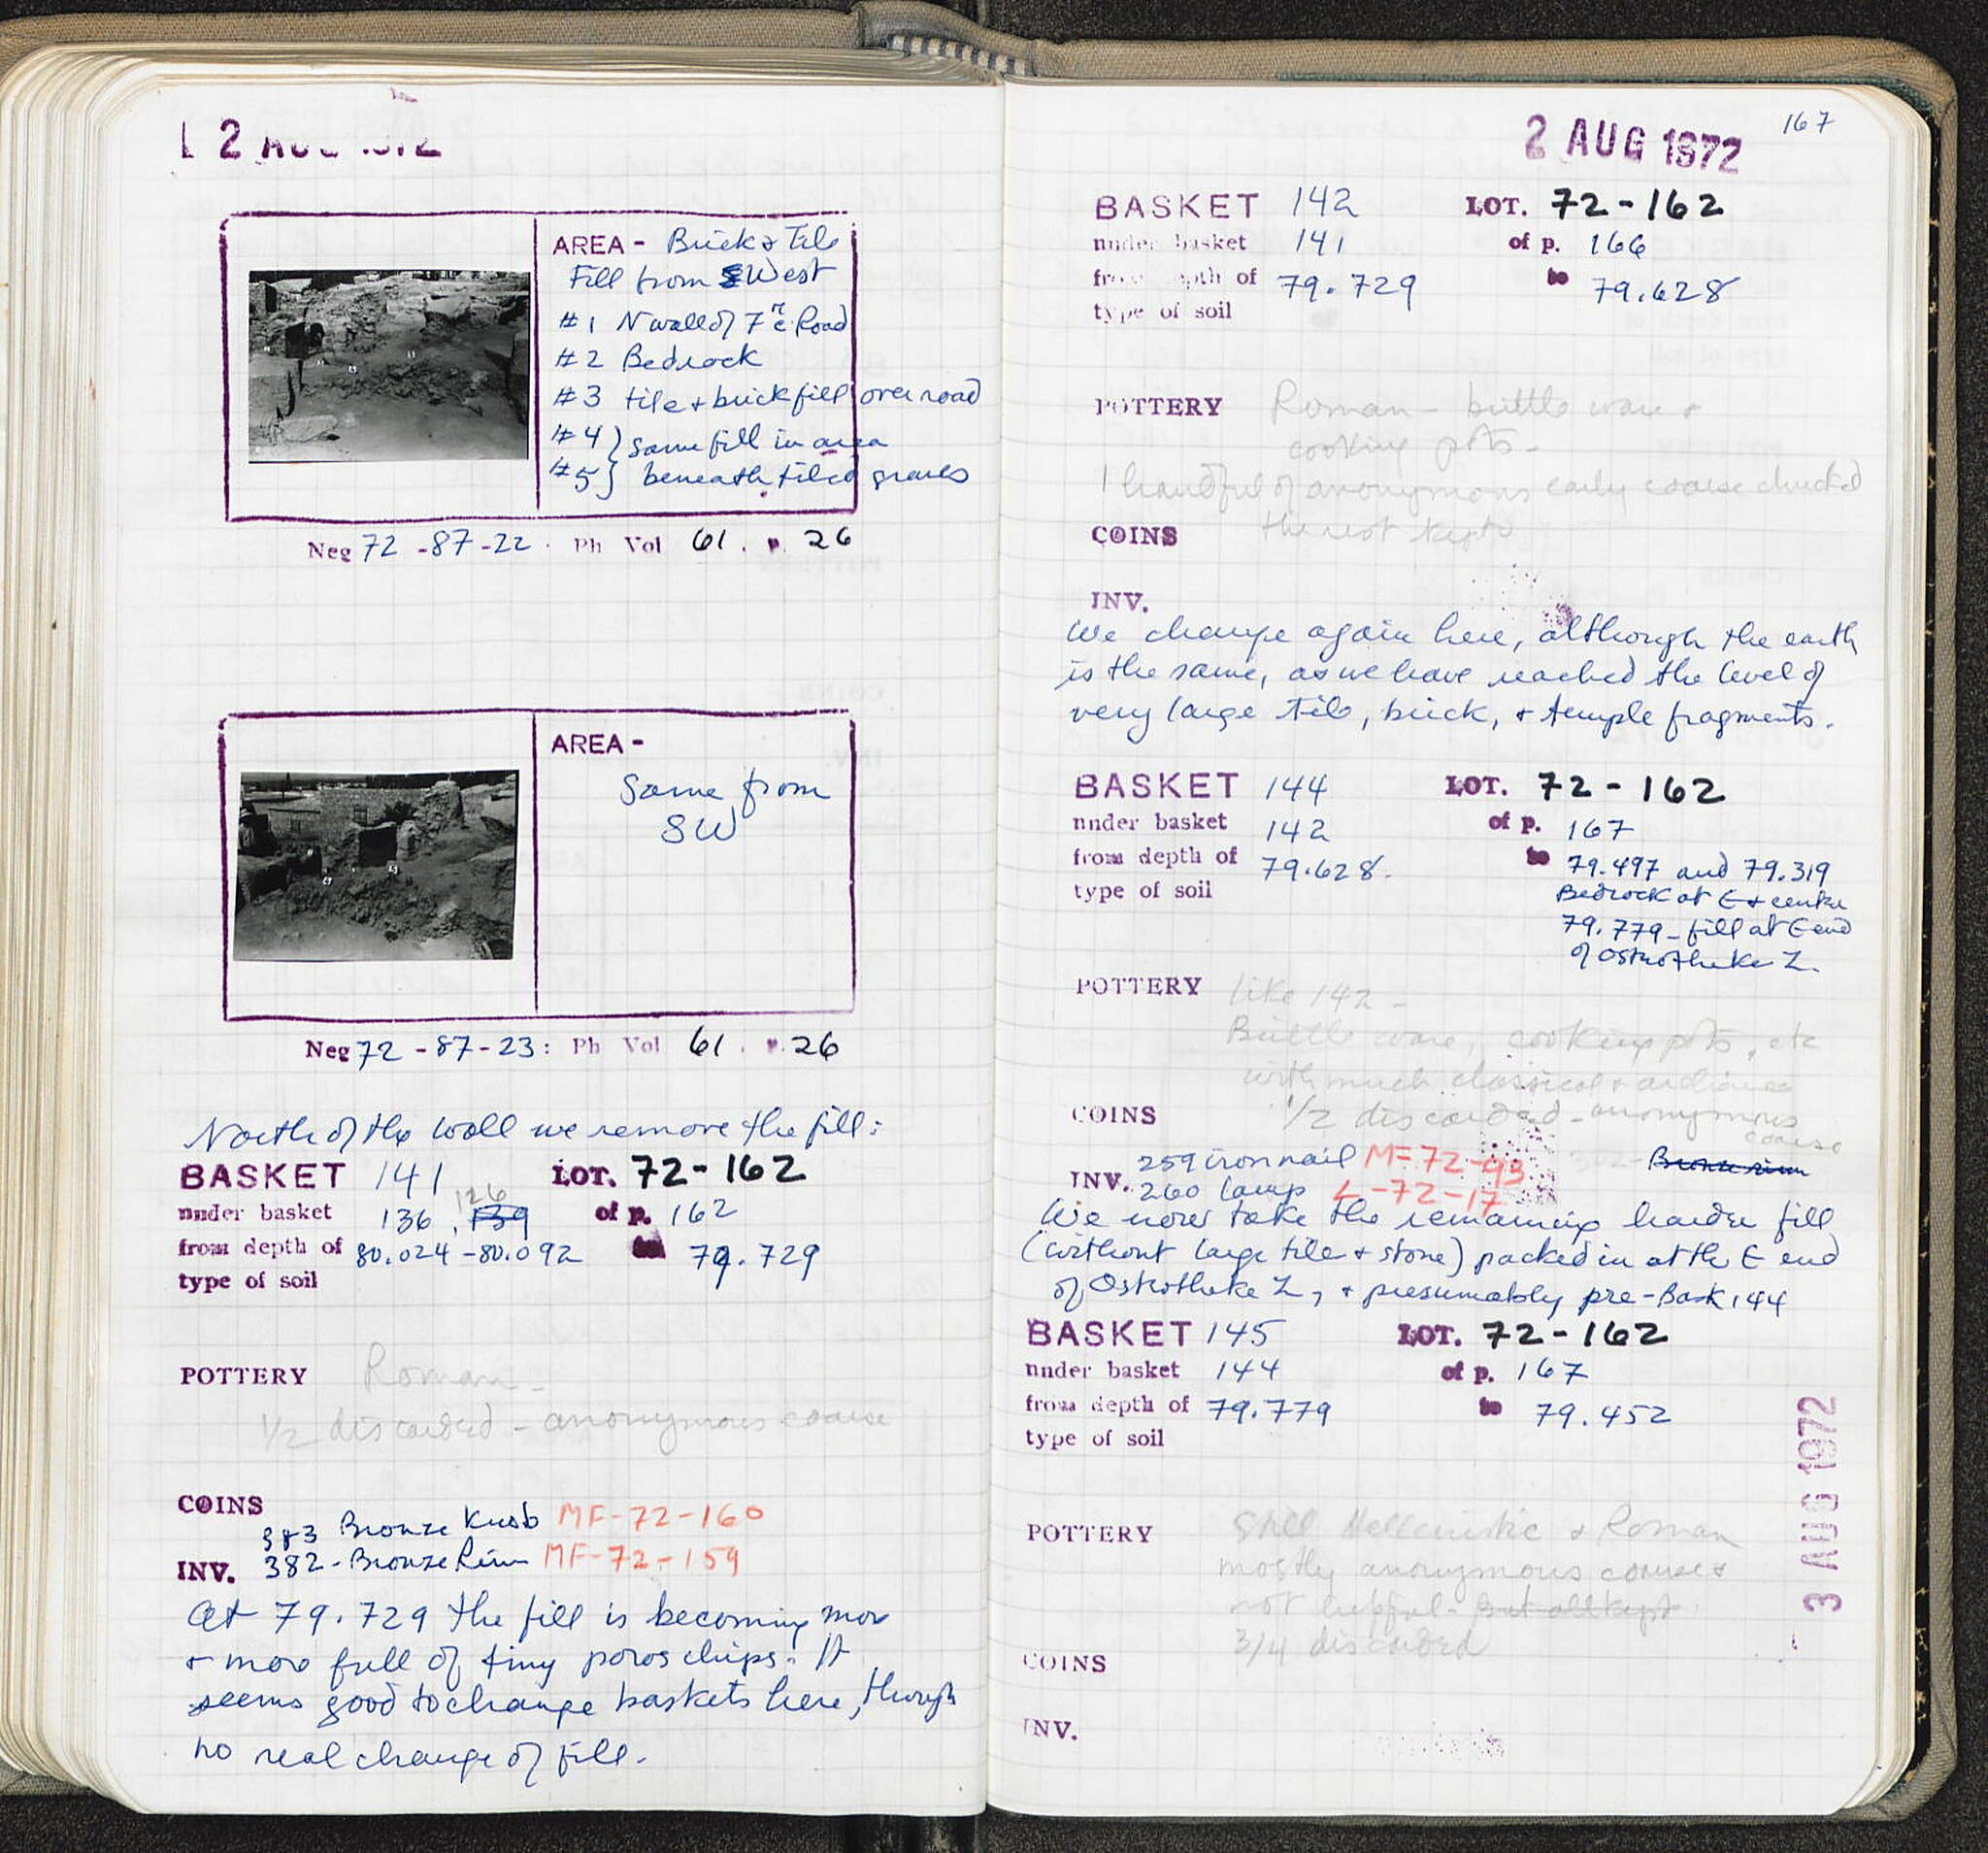 2 AUG 1972
AREA - Brick & Tile
Fill from West
#1 N wall of 7th c. Road
#2 Bedrock
#3 tile + brick fill over road
#4 } same fill in area
#5 } beneath tiled graves
Neg 72-87-22. Ph Vol 61. p. 26
AREA -
Same from
SW
Neg 72-87-23: Ph Vol 61. p. 26
North of the wall we remove the fill:
BASKET 141 LOT. 72-162
126
under basket 136, 139 of p. 162
from depth of 80.024-80.092 to 79.729
type of soil
POTTERY Roman -
1/2 discarded - anonymous coarse
COINS
383 Bronze Knob MF-72-160
INV. 382 - Bronze Rim MF-72-159
At 79.729 the fill is becoming more
+ more full of tiny poros chips. It
seems good to change baskets here, though
no real change of fill.
167
2 AUG 1972
BASKET 142 LOT. 72-162
under basket 141 of p. 166
from depth of 79.729 to 79.628
type of soil
POTTERY Roman - brittle ware +
cooking pots -
1 handful of anonymous early coarse chucked
the rest kept
COINS
INV.
We change again here, although the earth
is the same, as we have reached the level of
very large tile, brick, + temple fragments.
BASKET 144 LOT. 72-162
under basket 142 of p. 167
from depth of 79.628. to 79.497 and 79.319
type of soil
Bedrock at E + centre
79.779 - fill at E end
of Ostotheke Z.
POTTERY like 142 -
Brittle ware, cooking pots, etc
with much classical + archaic
1/2 discarded - anonymous
coarse
COINS
259 iron nail MF 72-93 382 - Bronze rim
INV. 260 lamp L-72-17
We now take the remaining harder fill
(without large tile + stone) packed in at the E end
of Ostotheke Z, + presumably pre-Bask 144
BASKET 145 LOT. 72-162
under basket 144 of p. 167
from depth of 79.779 to 79.452
type of soil
3 AUG 1972
POTTERY Still Hellenistic + Roman
mostly anonymous coarse +
not helpful - But all kept
3/4 discarded
COINS
INV.